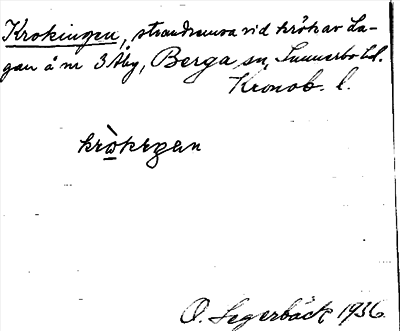 Krokingen, strandremsa vid krök av La-
gan å nr 3 Åby, Berga sn, Sunnerbo hd.
Kronob. l.
krò̤kıŋən
O. Segerbäck 1936.